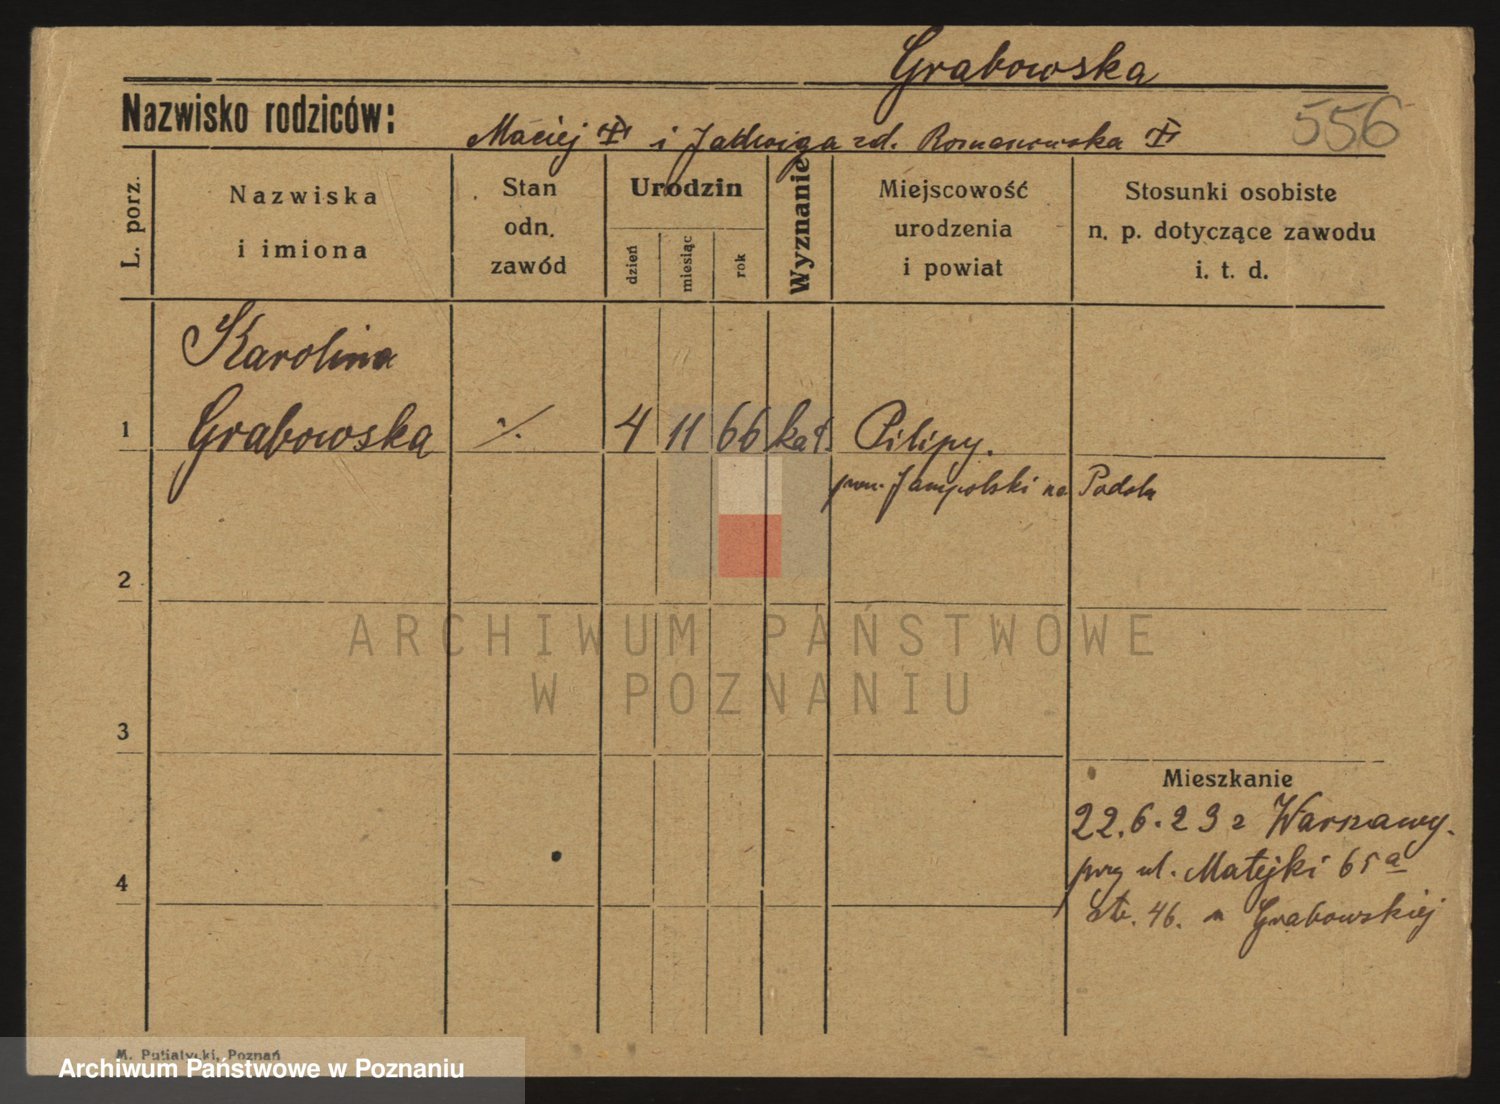 Grabowska
556
Nazwisko rodziców:
Maciej i Jadwiga zd. Romanowska
L. porz.
Nazwiska
i imiona
Stan
odn.
zawód
Urodzin
dzień
miesiąc
rok
Wyznanie
Miejscowość
urodzenia
i powiat
Stosunki osobiste
n. p. dotyczące zawodu
i. t. d.
Karolina
1 Grabowska ·/. 4 11 66 kat. Pilipy.
pow. Jampolski na Podolu
2
ARCHIWUM PAŃSTWOWE
W POZNANIU
3
Mieszkanie
22.6.23 z Warszawy.
przy ul. Matejki 65a
4
46. u Grabowskiej
M. Putiatycki, Poznań
Archiwum Państwowe w Poznaniu